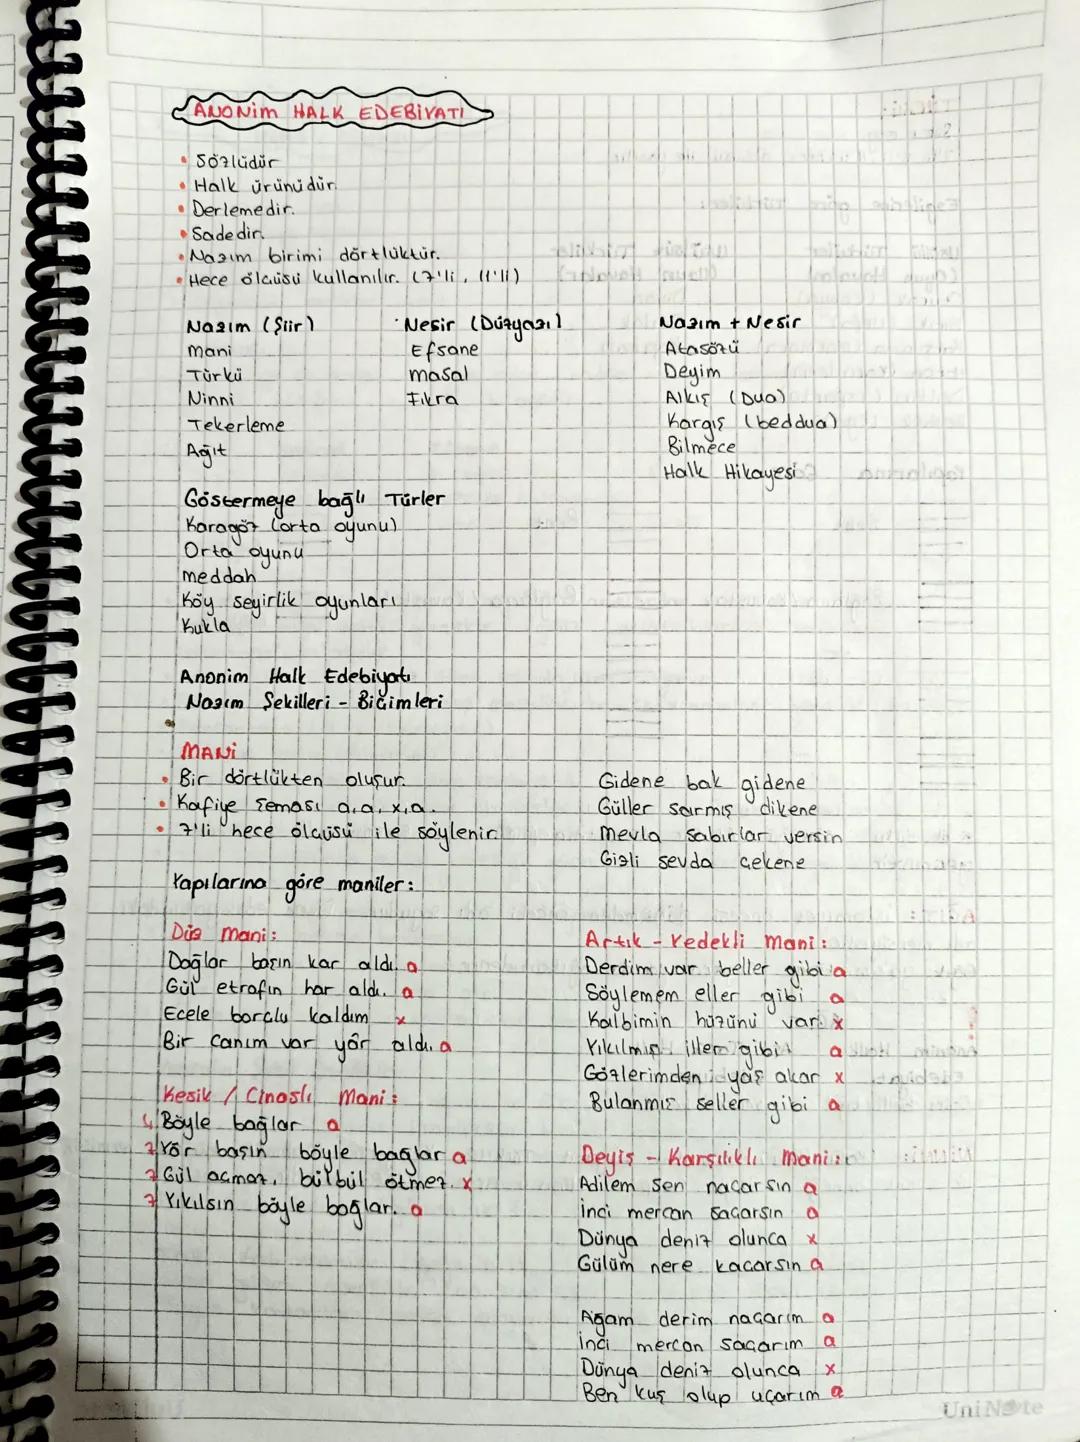 ANONİM HALK EDEBİYATI
• Sözlüdür
• Halk ürünüdür.
• Derlemedir.
• Sadedir.
• Nazım birimi dörtlüktür.
• Hece ölçüsü kullanılır. (7'li, 11'li)
Nazım (Şiir)
Mani
Türkü
Ninni
Tekerleme
Ağıt
Nesir (Düzyazı)
Efsane
Masal
Fıkra
Nazım + Nesir
Atasözü
Deyim
Alkış (Dua)
Kargış (beddua)
Bilmece
Halk Hikayesi
Göstermeye bağlı Türler
Karagöz (orta oyunu)
Orta oyunu
meddah
Köy seyirlik oyunları
Kukla
Anonim Halk Edebiyatı
Nazım Şekilleri - Biçimleri
MANİ
• Bir dörtlükten oluşur.
• Kafiye şeması a,a,x,a.
• 7'li hece ölçüsü ile söylenir.
Gidene bak gidene
Güller sarmış dikene
Mevla sabırlar versin
Gizli sevda çekene
Yapılarına göre maniler:
Düz Mani:
Dağlar başın kar aldı. a
Gül etrafın har aldı. a
Ecele borçlu kaldım x
Bir canım var yâr aldı. a
Kesik / Cinaslı Mani:
4 Böyle bağlar a
7 Yâr başın böyle bağlar a
7 Gül açmaz, bülbül ötmez. x
7 Yıkılsın böyle bağlar. a
Artık - Yedekli Mani:
Derdim var beller gibi a
Söylemem eller gibi a
Kalbimin hüzünü var x
Yıkılmış iller gibi a
Gözlerimden yaş akar x
Bulanmış seller gibi a
Deyiş - Karşılıklı Mani:
Adilem sen naçarsın a
İnci mercan saçarsın a
Dünya deniz olunca x
Gülüm nere kaçarsın a
Ağam derim naçarım a
İnci mercan saçarım a
Dünya deniz olunca x
Ben kuş olup uçarım a
UniNote